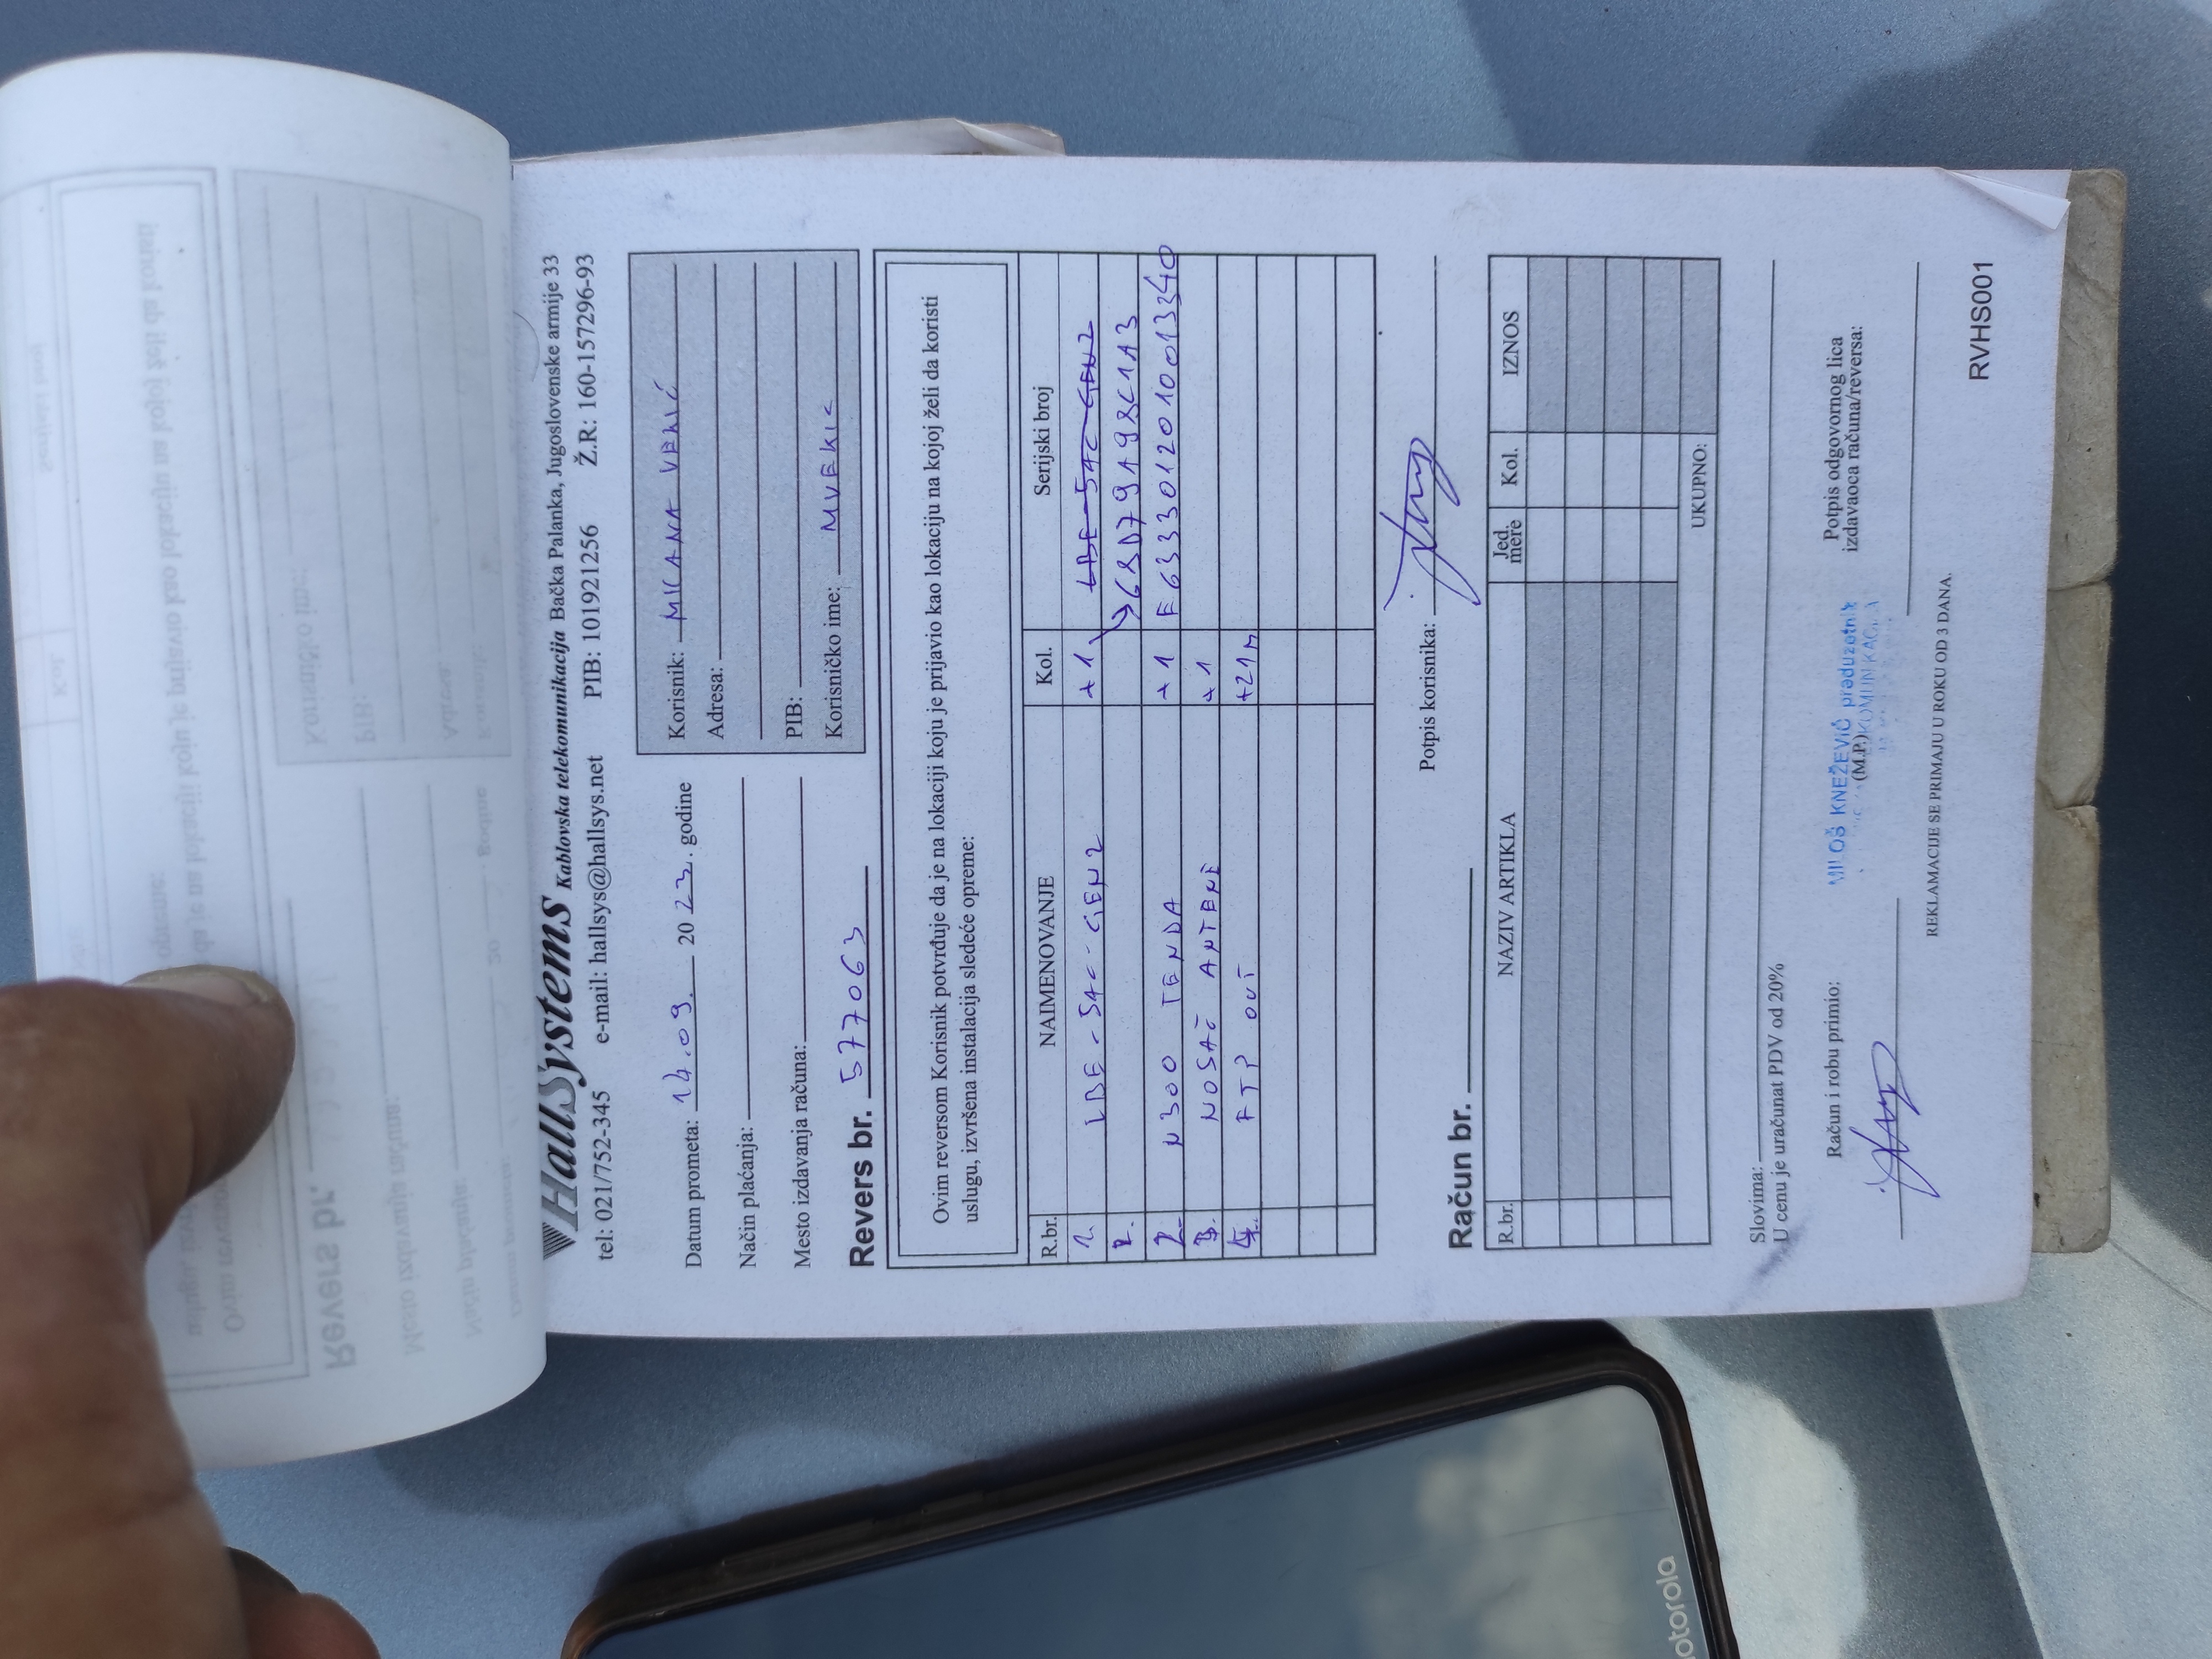 HallSystems Kablovska telekomunikacija Bačka Palanka, Jugoslovenske armije 33
tel: 021/752-345 e-mail: hallsys@hallsys.net PIB: 101921256 Ž.R: 160-157296-93
Datum prometa: 14.09. 2023. godine
Način plaćanja:
Mesto izdavanja računa:
Korisnik: MILANA VEKIĆ
Adresa:
PIB:
Korisničko ime: MVEKIC
Revers br. 577063
Ovim reversom Korisnik potvrđuje da je na lokaciji koju je prijavio kao lokaciju na kojoj želi da koristi
uslugu, izvršena instalacija sledeće opreme:
R.br. NAIMENOVANJE Kol. Serijski broj
1. LBE-5AC-GEN2 +1 LBE-5AC-GEN2
2. → 68D79198C1A3
2. N300 TENDA +1 E6333012010013340
3. NOSAČ ANTENE +1
4. FTP OUT +21m
Potpis korisnika:
Račun br.
R.br. NAZIV ARTIKLA Jed. mere Kol. IZNOS
UKUPNO:
Slovima:
U cenu je uračunat PDV od 20%
Račun i robu primio:
MILOŠ KNEŽEVIĆ preduzetnik
(M.P.) KOMUNIKACIJA
Potpis odgovornog lica
izdavaoca računa/reversa:
REKLAMACIJE SE PRIMAJU U ROKU OD 3 DANA.
RVHS001
Revers br.
otorola